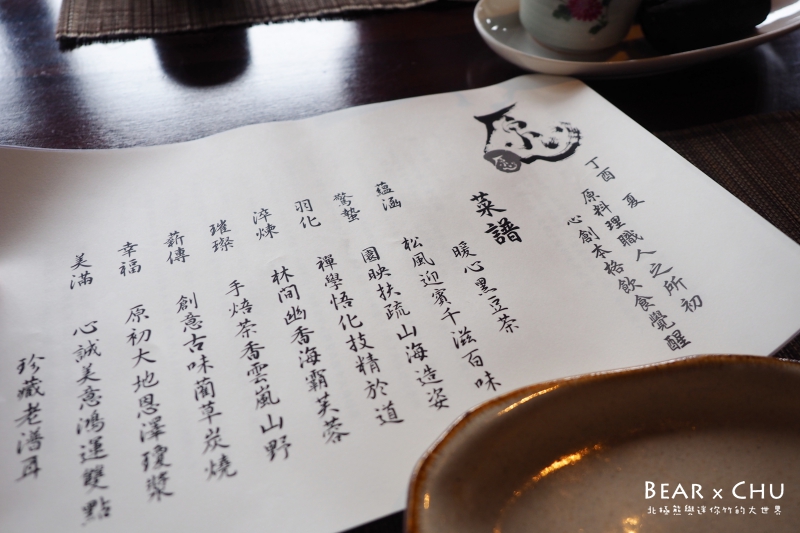 丁酉 夏
原料理職人之所初
心創本格飲食覺醒
菜譜
暖心黑豆茶
蘊涵 松風迎賓千滋百味
驚蟄 園映扶疏山海造姿
羽化 禪學悟化技精於道
淬煉 林間幽香海霸芙蓉
璀璨 手焙茶香雲嵐山野
薪傳 創意古味藺草炭燒
幸福 原初大地恩澤瓊漿
美滿 心誠美意鴻運雙點
珍藏老潽耳
BEAR x CHU
北極熊與迷你竹的大世界